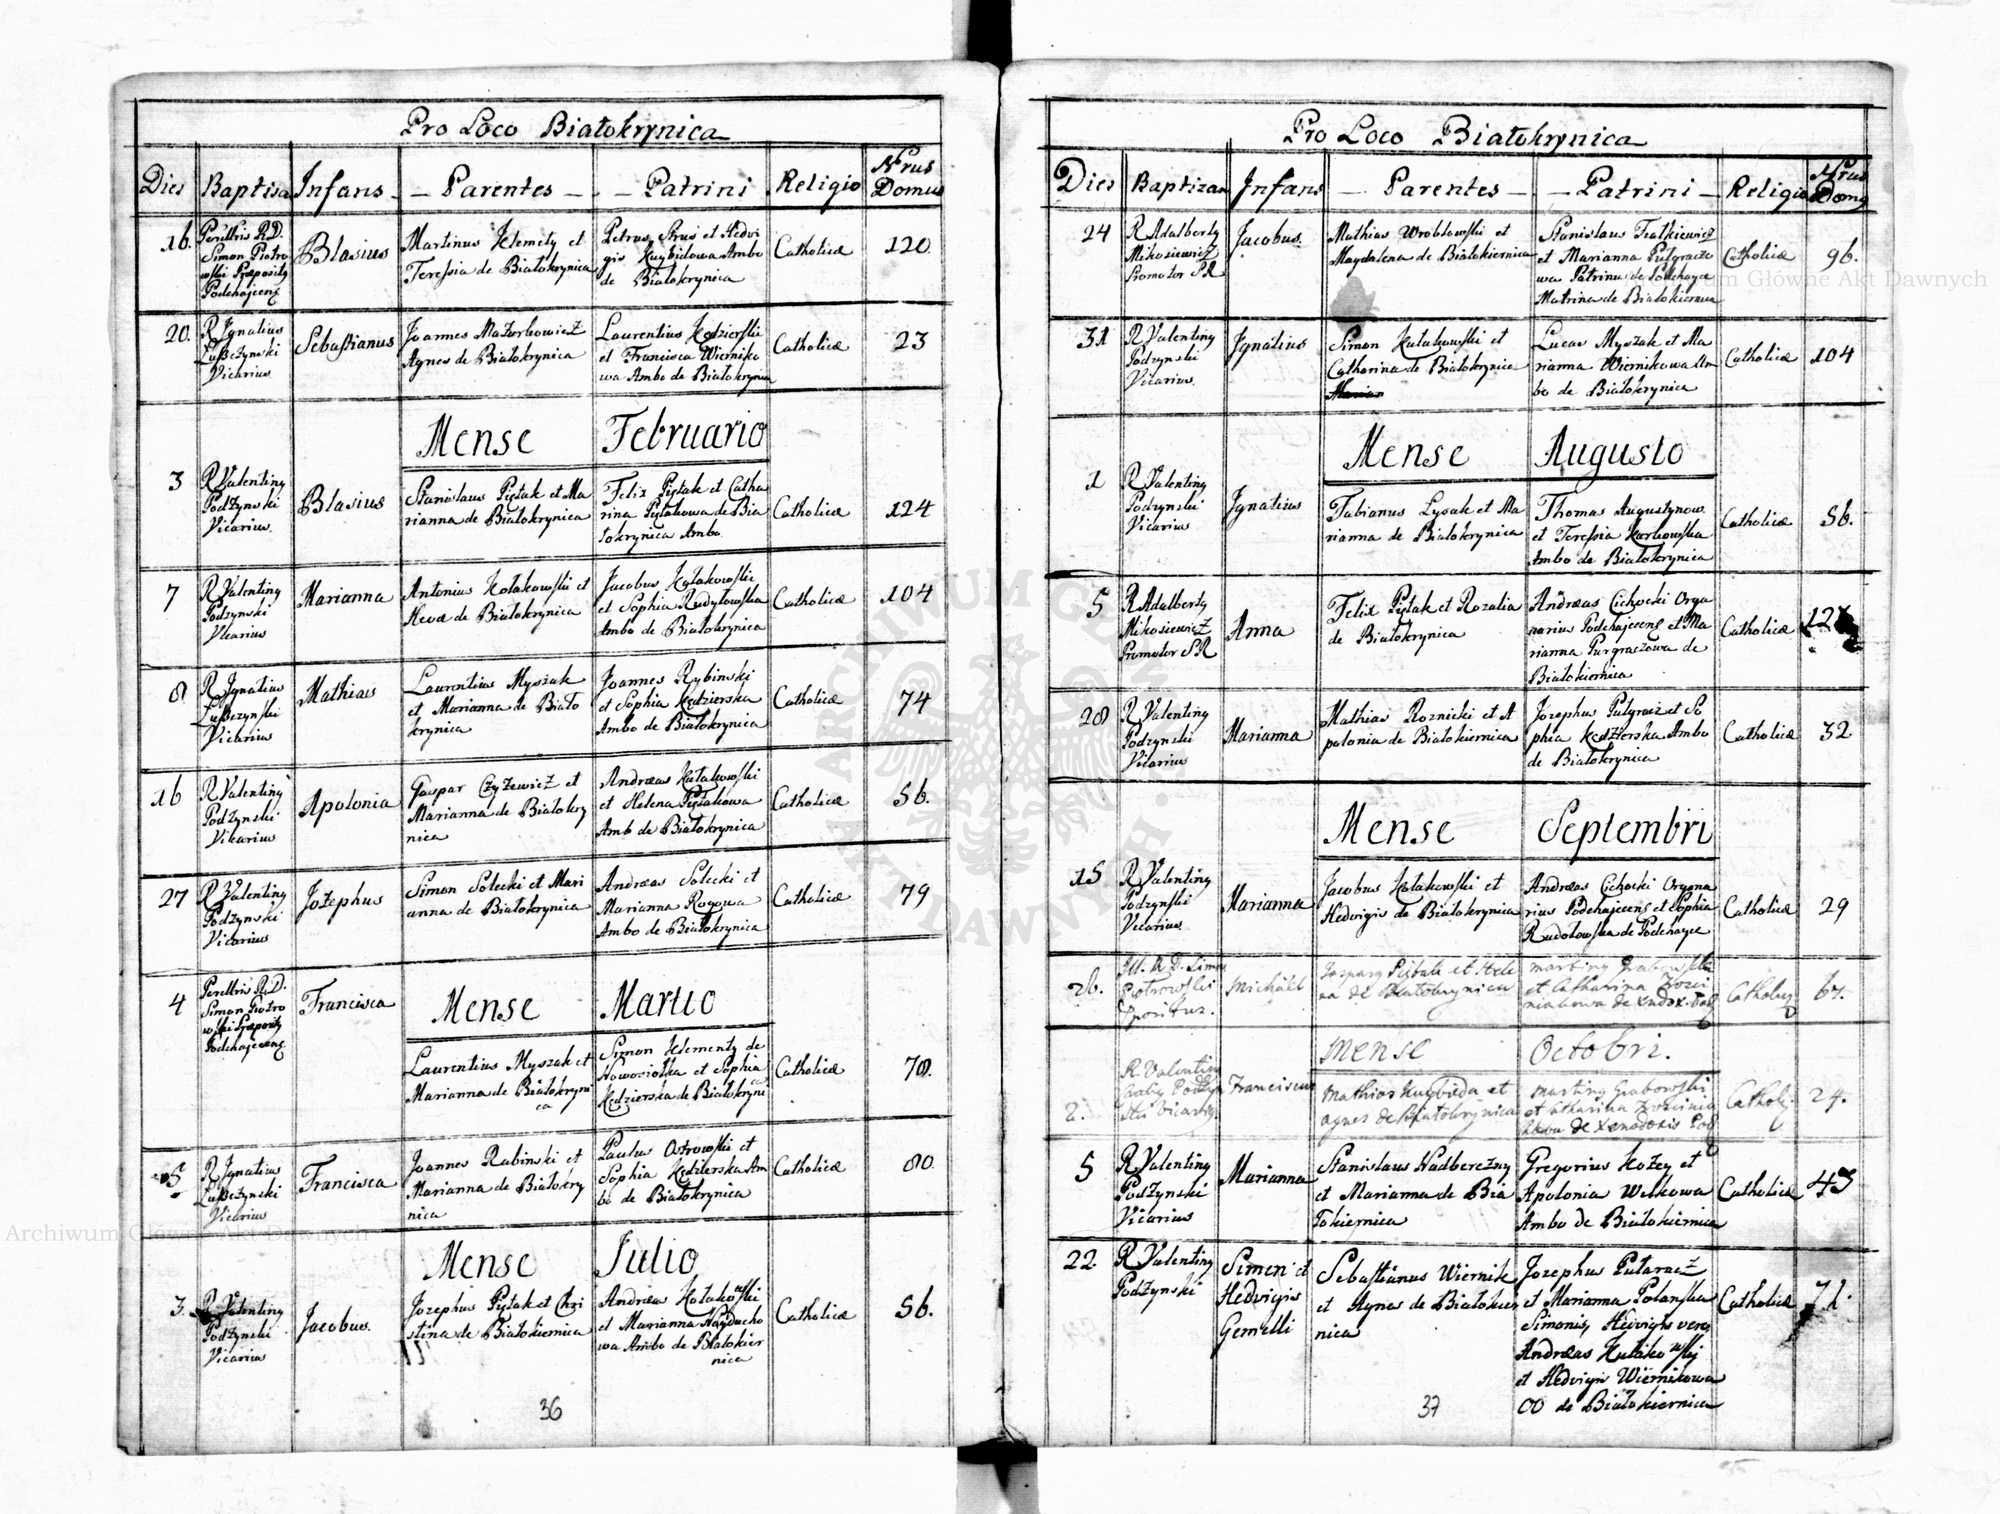 Pro Loco Białokrynica
Dies Baptisa Infans Parentes Patrini Religio Nrus Domus
16. Perillris R.D. Simon Piotrowski Præposity Podehajceng
Blasius
Martinus Klemety et
Teressia de Białokrynica
Petrus Strus et Hedvi
gis Kuybidowa Ambo
de Białokrynica
Catholicæ
120.
20. R Ignatius
Lubczynski
Vicarius
Sebastianus
Joannes Mazurkowicz
Agnes de Białokrynica
Laurentius Kędzierski
et Francisca Wierniko
wa Ambo de Białokrynica
Catholicæ
23
Mense Februario
3 R Valenting
Podzynski
Vicarius
Blasius
Stanislaus Piętak et Ma
rianna de Białokrynica
Felix Piętak et Catha
rina Piętakowa de Bia
łokrynica Ambo
Catholicæ
124
7 R Valenting
Podzynski
Vicarius
Marianna
Antonius Kołakowski et
Hevæ de Białokrynica
Jacobus Kołakowski
et Sophia Rudytowska
Ambo de Białokrynica
Catholicæ
104
8 R Ignatius
Lubczynski
Vicarius
Mathias
Laurentius Myszak
et Marianna de Biało
krynica
Joannes Rybinski
et Sophia Kędzierska
Ambo de Białokrynica
Catholicæ
74
16 R Valenting
Podzynski
Vicarius
Apolonia
Gaspar Czyżewicz et
Marianna de Białokry
nica
Andræas Kułakowski
et Helena Piętakowa
Amb de Białokrynica
Catholicæ
56.
27 R Valenting
Podzynski
Vicarius
Jozephus
Simon Solecki et Mari
anna de Białokrynica
Andræas Solecki et
Marianna Rogowa
Ambo de Białokrynica
Catholicæ
79
Mense Martio
4 Perillris R.D.
Simon Piotro
wski Præposity
Podehajceng
Francisca
Laurentius Myszak et
Marianna de Białokryni
ca
Simon Klementy de
Nowosiołka et Sophia
Kędzierska de Białokryni
ca
Catholicæ
78.
5 R Ignatius
Lubczynski
Vicarius
Francisca
Joannes Rabinski et
Marianna de Białokry
nica
Paulus Ostrowski et
Sophia Kędzierska Am
bo de Białokrynica
Catholicæ
80
Mense Julio
3. R Valenting
Podzynski
Vicarius
Jacobus.
Jozephus Piętak et Chri
stina de Białokiernica
Andræas Kołakowski
et Marianna Hayducho
wa Ambo de Białokier
nica
Catholicæ
56.
36
Pro Loco Białokrynica
Dies Baptizan Infans Parentes Patrini Religio Nrus Domq
24 R Adalberty
Mikosiewicz
Promotor SR
Jacobus.
Mathias Wroblowski et
Magdalena de Białokiernica
Stanislaus Fiałkiewicz
et Marianna Pulgraczo
wa Patrinus de Podehayce
Matrina de Białokiernica
Catholicæ
96.
31 R Valenting
Podzynski
Vicarius.
Ignatius
Simon Kułakowski et
Catharina de Białokrynica
Lucas Myszak et Ma
rianna Wiernikowa Am
bo de Białokrynica
Catholicæ
104
Mense Augusto
1 R Valenting
Podzynski
Vicarius
Ignatius
Fabianus Lysak et Ma
rianna de Białokrynica
Thomas Augustynow.
et Teressia Karkowska
Ambo de Białokrynica
Catholicæ
56.
5 R Adalberty
Mikosiewicz
Promotor SR
Anna
Felix Piętak et Rozalia
de Białokrynica
Andræas Cichocki Orga
narius Podehajceng et Ma
rianna Purgraczowa de
Białokiernica
Catholicæ
28 R Valenting
Podzynski
Vicarius
Marianna
Mathias Roznicki et A
polonia de Białokiernica
Jozephus Pulgracz et So
phia Kędzierska Ambo
de Białokrynica
Catholicæ
32
Mense Septembri
15 R Valenting
Podzynski
Vicarius
Marianna
Jacobus Kołakowski et
Hedvigis de Białokrynica
Andræas Cichocki Orgona
rius Podehajceng et Sophia
Rudołowska de Podehayce
Catholicæ
29
26. Ill. R D. Simon
Piotrowski
Michaël
Gaspary Piętak et Hele
na de Białokrynica
Marting Grabowski
et Catharina
Catholicæ
67.
Mense Octobri.
2. R Valentin
Franciscus
Mathias Kuybieda et
Agnes de Białokrynica
Marting Grabowski
et Catharina
Catholicæ
24.
5 R Valenting
Podzynski
Vicarius
Marianna
Stanislaus Nadberezny
et Marianna de Bia
łokiernica
Gregorius Kozey et
Apolonia Welkowa
Ambo de Białokiernica
Catholicæ
43
22. R Valenting
Podzynski
Simon et
Hedvigis
Gemelli
Sebastianus Wiernik
et Agnes de Białokier
nica
Jozephus Pularacz
et Marianna Polanska
Simonis, Hedvigis vero
Andræas Kułakowskij
et Hedvigis Wiernikowa
OO de Białokiernica
Catholicæ
71.
37
ARCHIWUM GŁÓWNE AKT DAWNYCH
Archiwum Główne Akt Dawnych
Archiwum Główne Akt Dawnych